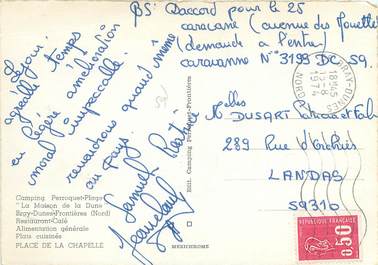 BS: Daccord pour le 25
caravane (avenue des Mouettes
(demande à l'entrée
caravanne N° 3199 DC 59.
Séjour
agréable temps
en légère amélioration
moral impeccable
reviendrons quand même
au Pays.
Samuel
Jeanclaude
BRAY-DUNES
18H45
-8
1974
NORD
Edit. Camping Perroquet-Frontières
Melles
DUSART Patricia et Fab
289 Rue d'Orchies
LANDAS
59310
Camping Perroquet-Plage
"La Maison de la Dune"
Bray-Dunes-Frontières (Nord)
Restaurant-Café
Alimentation générale
Plats cuisinés
PLACE DE LA CHAPELLE
MEXICHROME
REPUBLIQUE FRANÇAISE
0,50